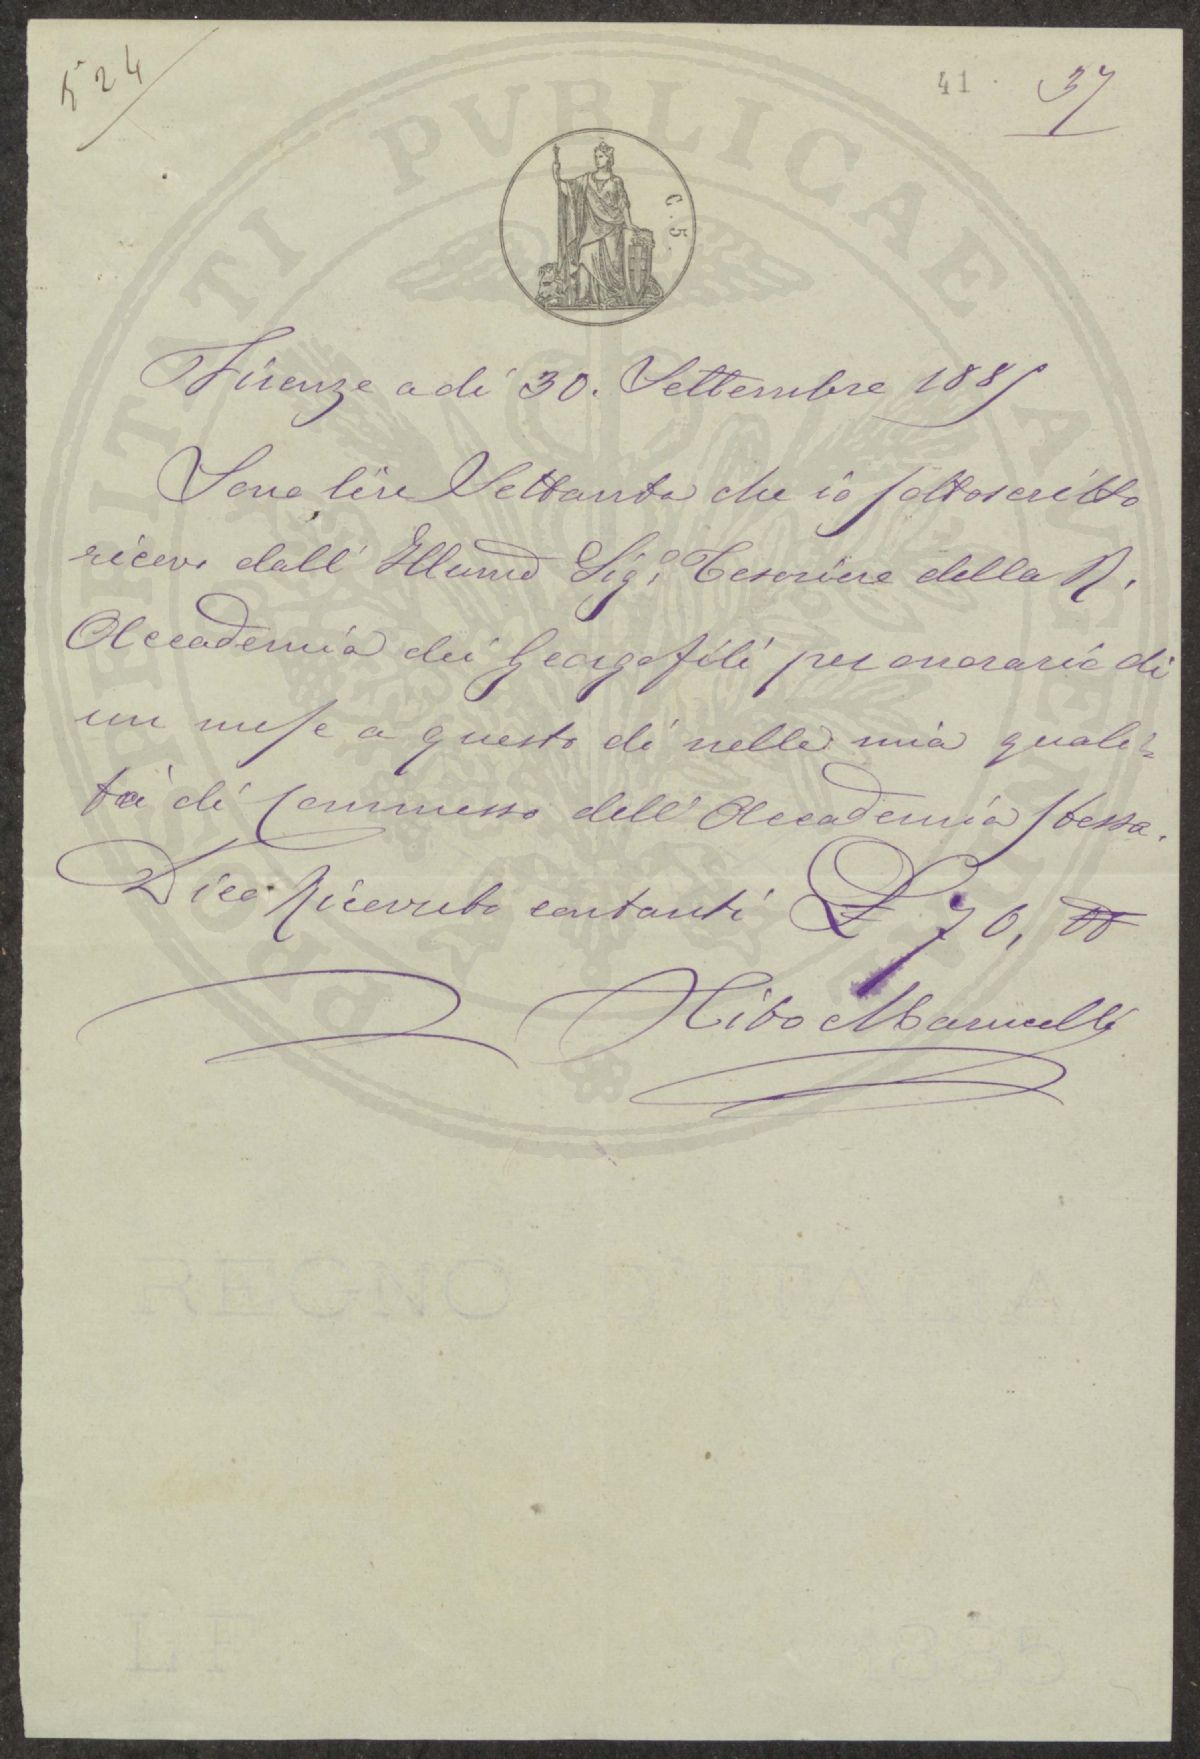 524
41
37
PROSPERITATI PVBLICAE AVGENDAE
C. 5.
Firenze a dì 30. Settembre 1885
Sono lire Settanta che io sottoscritto
ricevo dall' Illumo Sigo Tesoriere della R.
Accademia dei Georgofili per onorario di
un mese a questo dì nella mia quali=
tà di Commesso dell' Accademia stessa.
Dico Ricevuto contanti £ 70, 00
Tito Marucelli
REGNO D'ITALIA
LF 1885